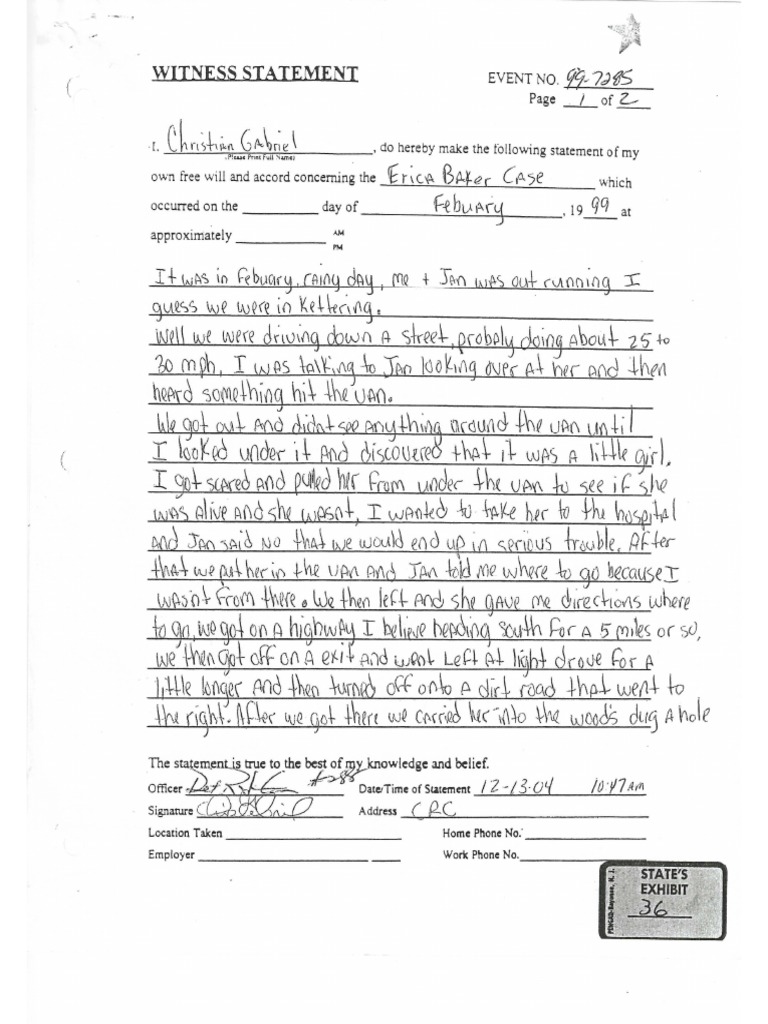 WITNESS STATEMENT
EVENT NO. 99-7285
Page 1 of 2
I. Christian Gabriel, do hereby make the following statement of my
(Please Print Full Name)
own free will and accord concerning the Erica Baker Case which
occurred on the ________ day of Febuary, 19 99 at
approximately ________ AM
PM
It was in Febuary, rainy day, me + Jan was out running I
guess we were in Kettering.
Well we were driving down a street, probaly doing about 25 to
30 mph, I was talking to Jan looking over at her and then
heard something hit the van.
We got out and didnt see anything around the van until
I looked under it and discovered that it was a little girl.
I got scared and pulled her from under the van to see if she
was alive and she wasnt, I wanted to take her to the hospital
and Jan said no that we would end up in serious trouble. After
that we put her in the van and Jan told me where to go because I
wasn't from there. We then left and she gave me directions where
to go, we got on a highway I believe heading south for a 5 miles or so,
we then got off on a exit and went left at light drove for a
little longer and then turned off onto a dirt road that went to
the right. After we got there we carried her into the wood's dug a hole
The statement is true to the best of my knowledge and belief.
Officer Det #288 Date/Time of Statement 12-13-04 10:47 AM
Signature Address CRC
Location Taken ________ Home Phone No. ________
Employer ________ Work Phone No. ________
STATE'S
EXHIBIT
36
PENGAD-Bayonne, N. J.